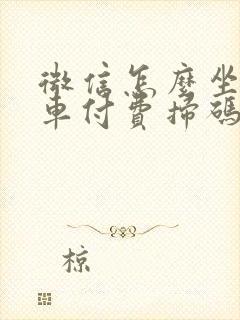 微信怎麼坐
車付費掃碼
椋